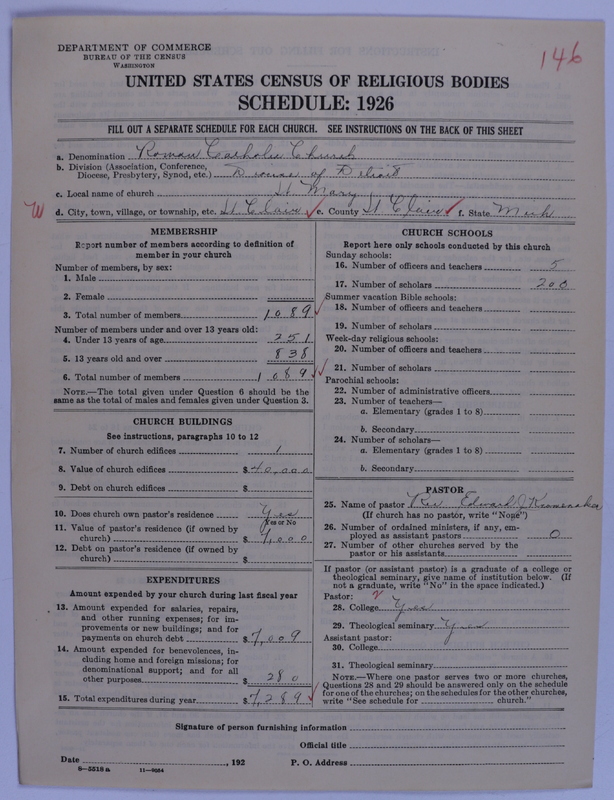 DEPARTMENT OF COMMERCE
BUREAU OF THE CENSUS
WASHINGTON
146
UNITED STATES CENSUS OF RELIGIOUS BODIES
SCHEDULE: 1926
FILL OUT A SEPARATE SCHEDULE FOR EACH CHURCH. SEE INSTRUCTIONS ON THE BACK OF THIS SHEET
a. Denomination Roman Catholic Church
b. Division (Association, Conference,
Diocese, Presbytery, Synod, etc.) Diocese of Detroit
c. Local name of church St Mary
W d. City, town, village, or township, etc. St Clair e. County St Clair f. State Mich
MEMBERSHIP
Report number of members according to definition of
member in your church
Number of members, by sex:
1. Male
2. Female
3. Total number of members 1089
Number of members under and over 13 years old:
4. Under 13 years of age 251
5. 13 years old and over 838
6. Total number of members 1089
NOTE.—The total given under Question 6 should be the
same as the total of males and females given under Question 3.
CHURCH BUILDINGS
See instructions, paragraphs 10 to 12
7. Number of church edifices 1
8. Value of church edifices $40,000
9. Debt on church edifices $
10. Does church own pastor's residence Yes
(Yes or No)
11. Value of pastor's residence (if owned by
church) $ 7,000
12. Debt on pastor's residence (if owned by
church) $
EXPENDITURES
Amount expended by your church during last fiscal year
13. Amount expended for salaries, repairs,
and other running expenses; for im-
provements or new buildings; and for
payments on church debt $7,009
14. Amount expended for benevolences, in-
cluding home and foreign missions; for
denominational support; and for all
other purposes $ 280
15. Total expenditures during year $7,289
CHURCH SCHOOLS
Report here only schools conducted by this church
Sunday schools:
16. Number of officers and teachers 5
17. Number of scholars 200
Summer vacation Bible schools:
18. Number of officers and teachers
19. Number of scholars
Week-day religious schools:
20. Number of officers and teachers
21. Number of scholars
Parochial schools:
22. Number of administrative officers
23. Number of teachers—
a. Elementary (grades 1 to 8)
b. Secondary
24. Number of scholars—
a. Elementary (grades 1 to 8)
b. Secondary
PASTOR
25. Name of pastor Rev Edward J
(If church has no pastor, write "None")
26. Number of ordained ministers, if any, em-
ployed as assistant pastors 0
27. Number of other churches served by the
pastor or his assistants
If pastor (or assistant pastor) is a graduate of a college or
theological seminary, give name of institution below. (If
not a graduate, write "No" in the space indicated.)
Pastor:
28. College Yes
29. Theological seminary Yes
Assistant pastor:
30. College
31. Theological seminary
NOTE.—Where one pastor serves two or more churches,
Questions 28 and 29 should be answered only on the schedule
for one of the churches; on the schedules for the other churches,
write "See schedule for church."
Signature of person furnishing information
Official title
Date , 192 P. O. Address
8—5518a 11—9054